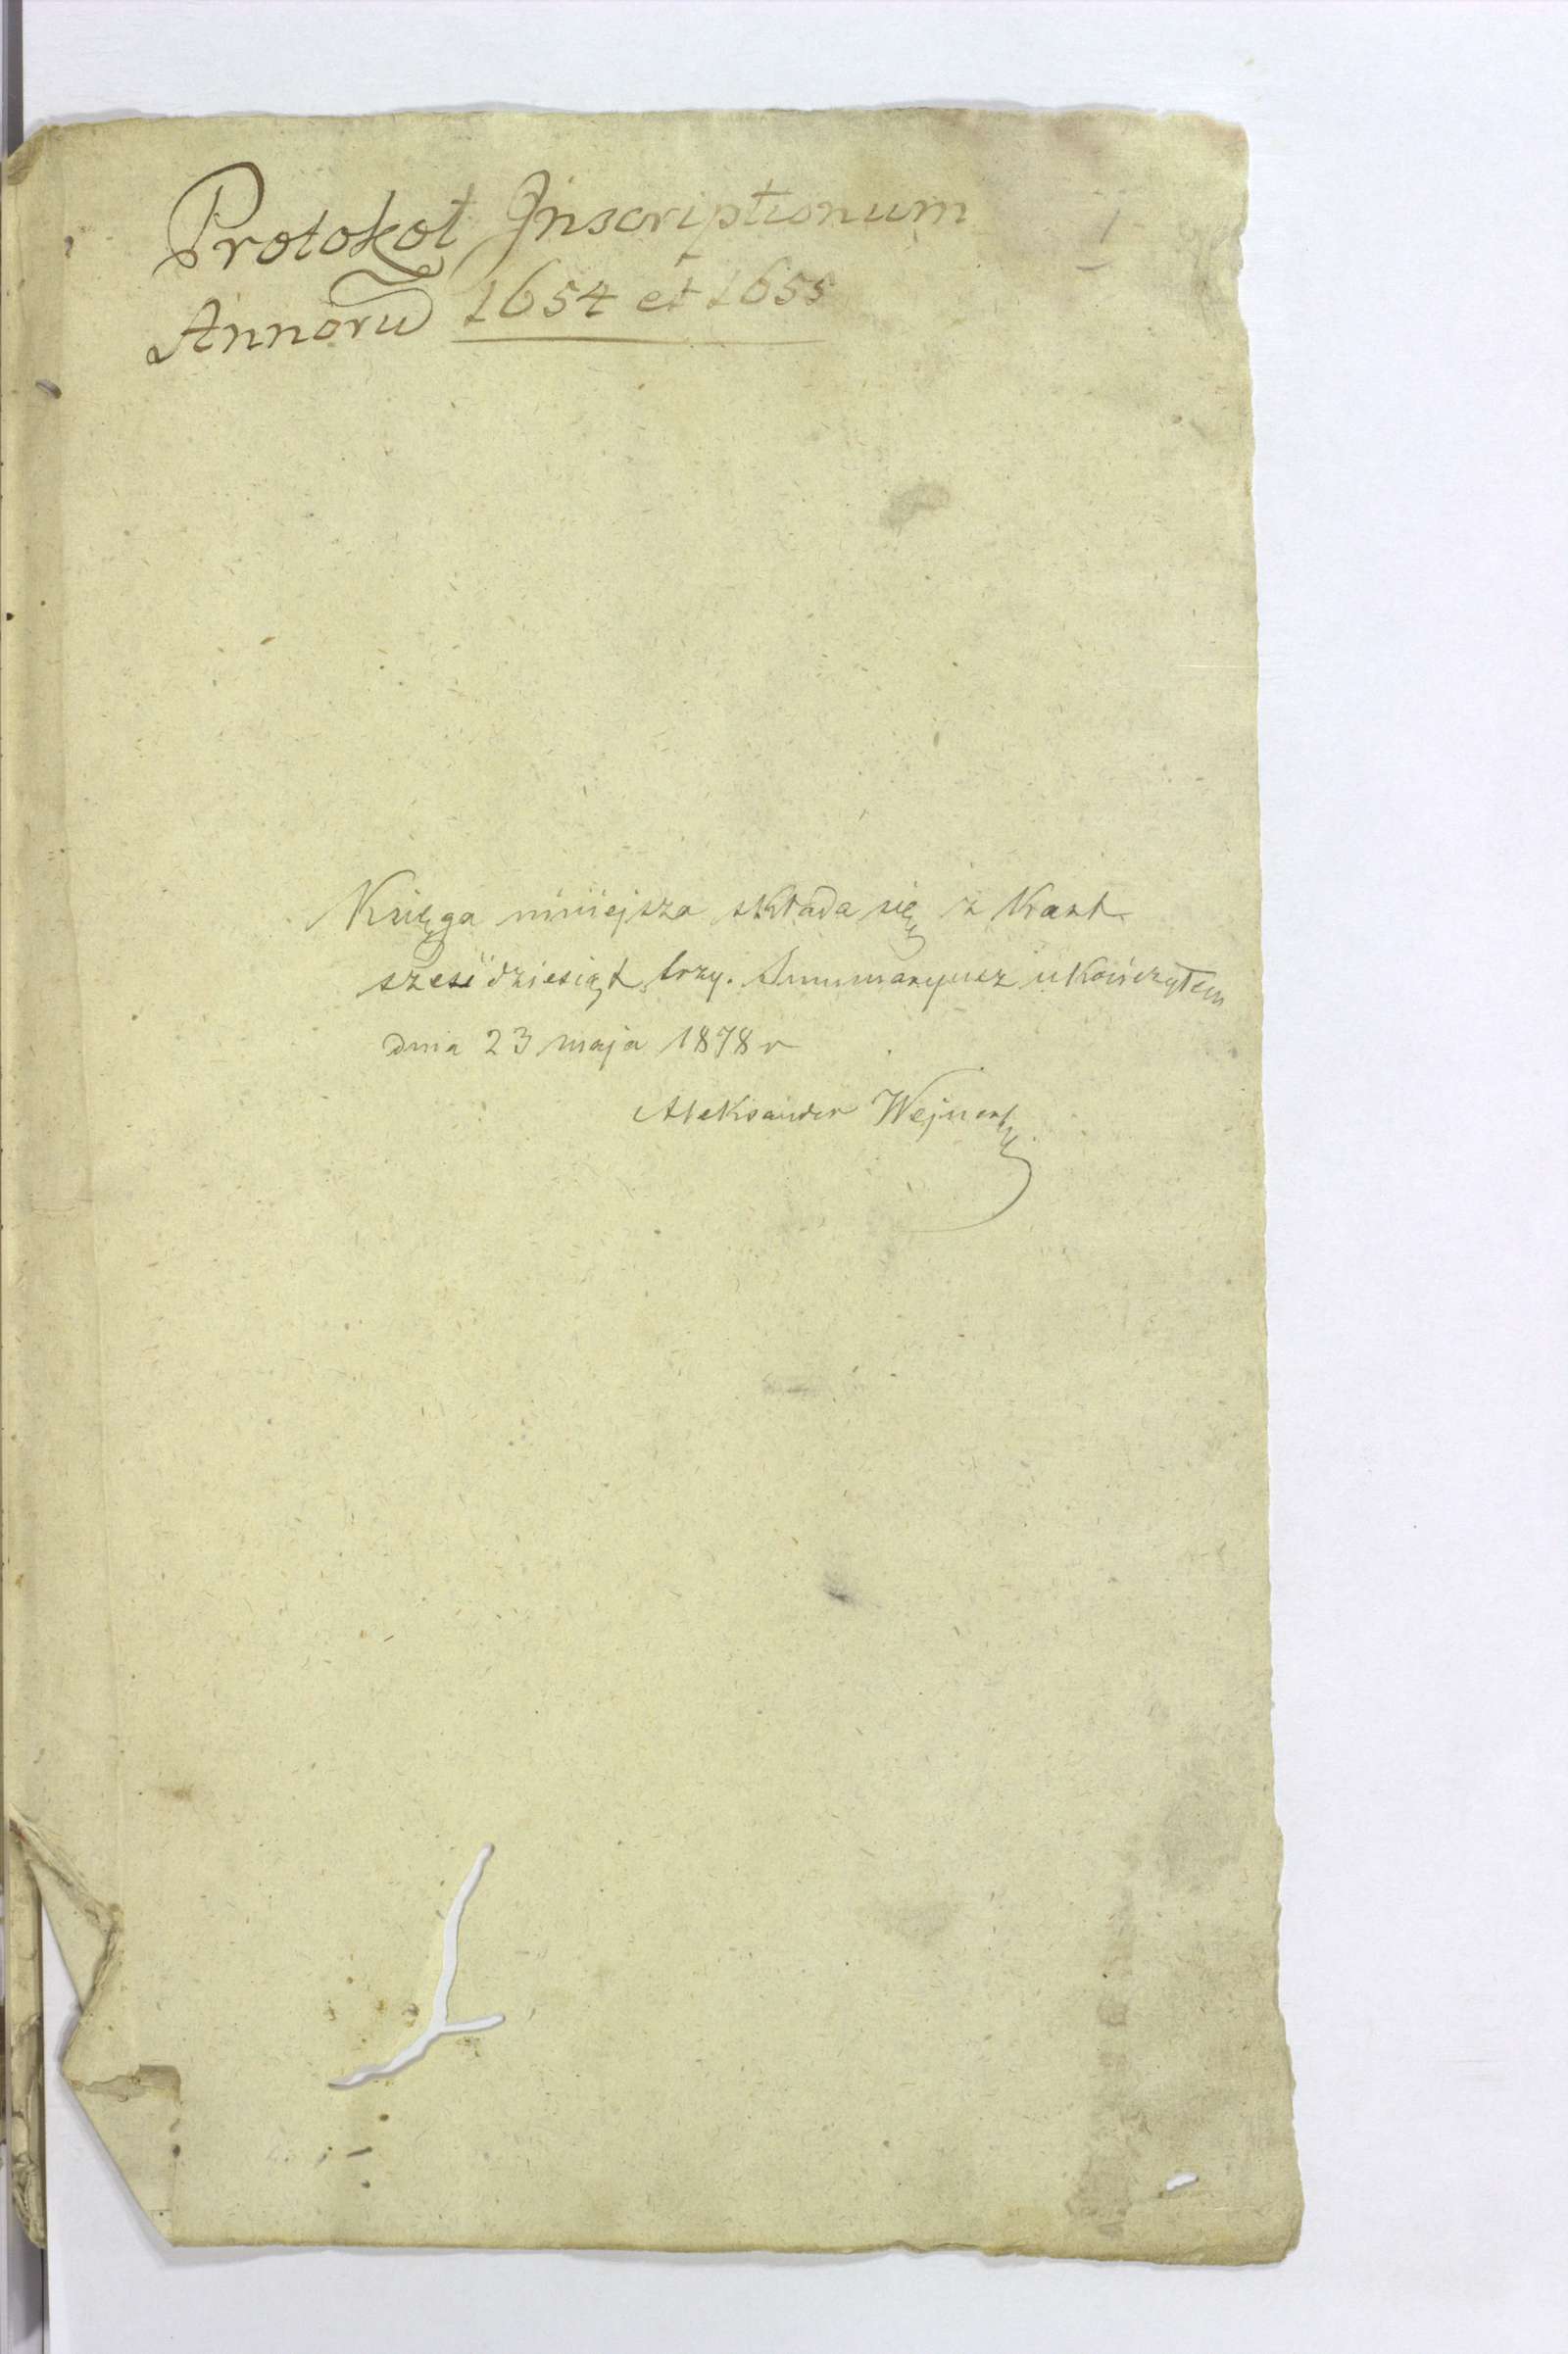 Protokoł Inscriptionum
1
Annorū 1654 et 1655
Księga niniejsza składa się z Kart
sześćdziesiąt trzy. Summaryusz ukończyłem
dnia 23 maja 1878 r
Aleksander Wejnert